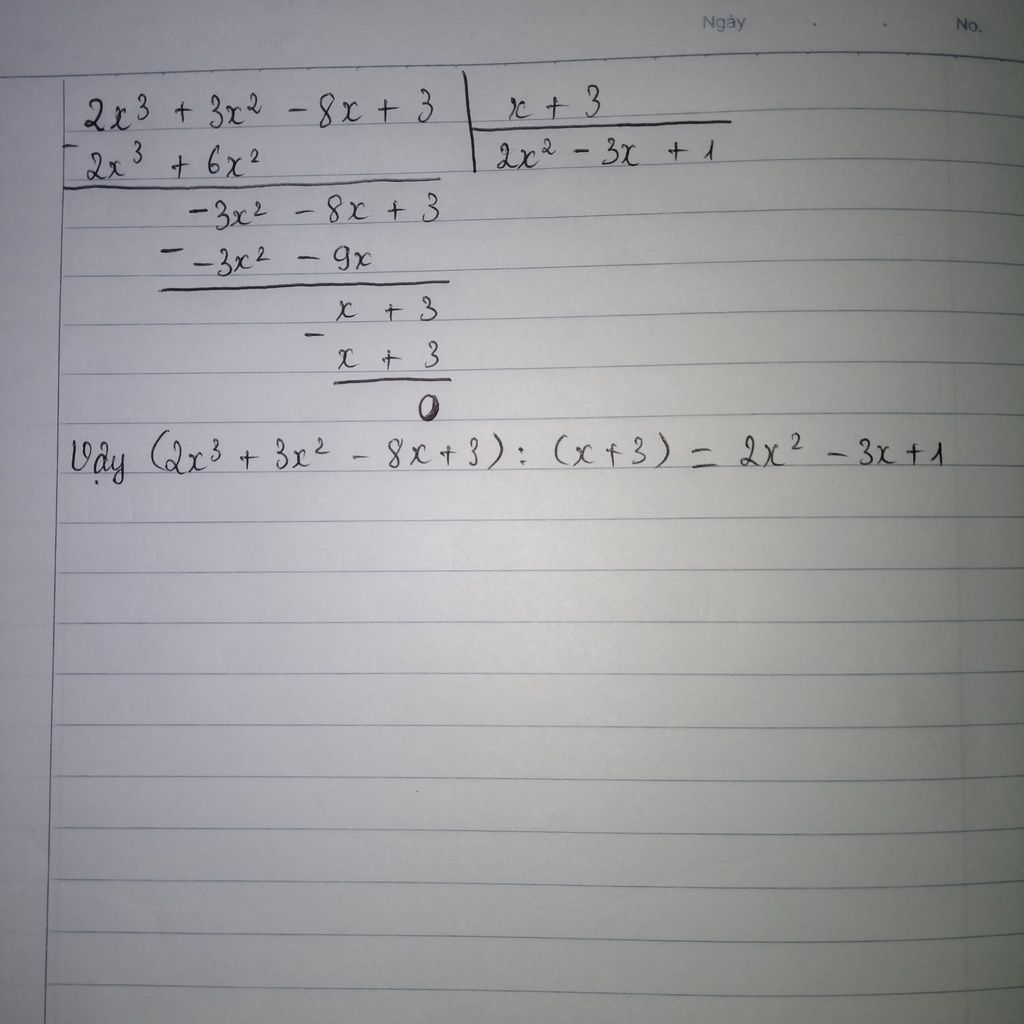 Ngày . . No.
2x³ + 3x² - 8x + 3 | x + 3
- 2x³ + 6x² | 2x² - 3x + 1
-3x² - 8x + 3
- -3x² - 9x
x + 3
-
x + 3
0
Vậy (2x³ + 3x² - 8x + 3) : (x + 3) = 2x² - 3x + 1